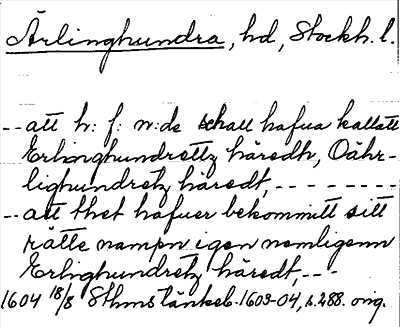 Ärlinghundra, hd, Stockh. l.
-- att h: f: n:de skall hafua kallatt
Erlinghundrettz häredh, Oähr-
lighundretz häredt, - - - - - - -
-- att thet hafuer bekommitt sitt
rätte nampn igen nemligenn
Erlighundretz häredt, - - -
1604 18/8 Sthms tänkeb. 1603-04, s. 288. orig.